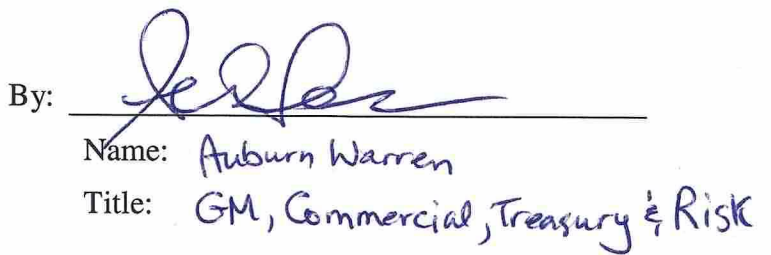 By:
Name: Auburn Warren
Title: GM, Commercial, Treasury & Risk